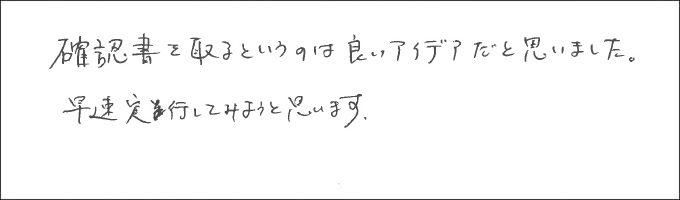 確認書を取るというのは良いアイデアだと思いました。
早速実行してみようと思います.